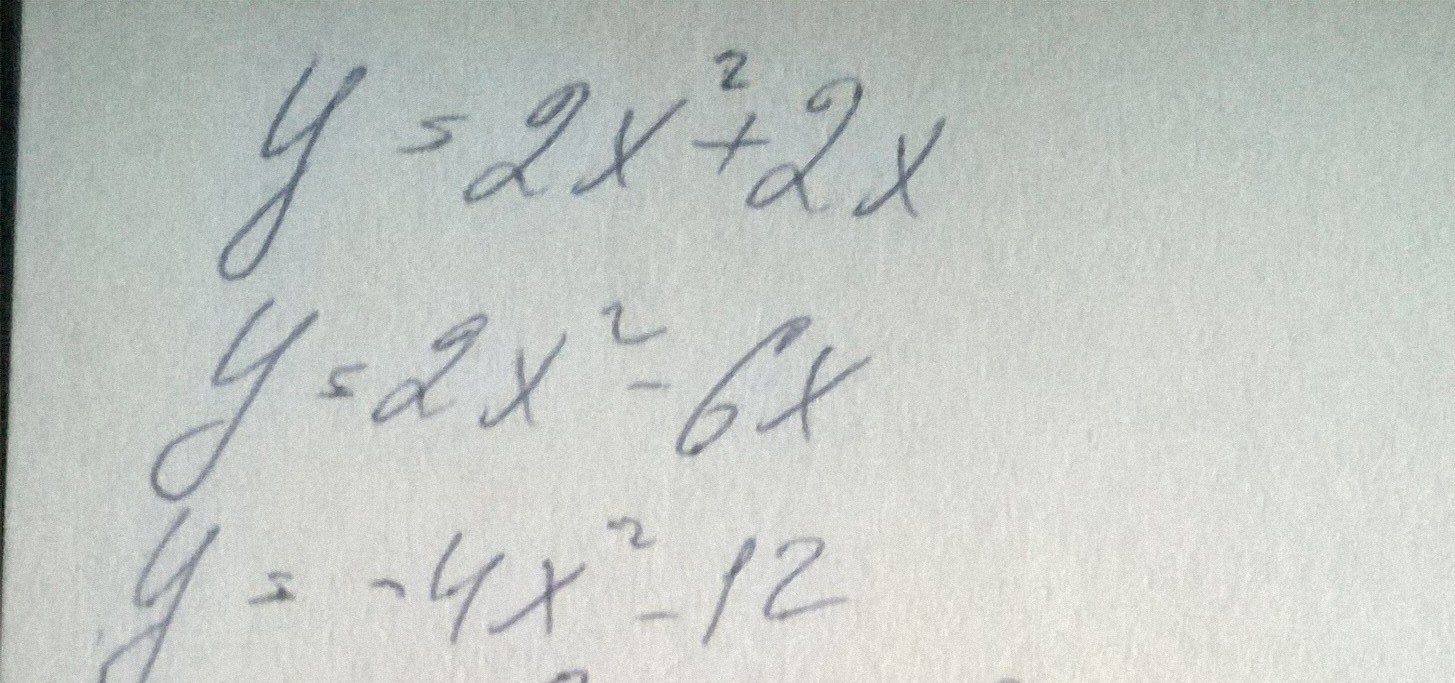 y = 2x² + 2x
y = 2x² - 6x
y = -4x² - 12